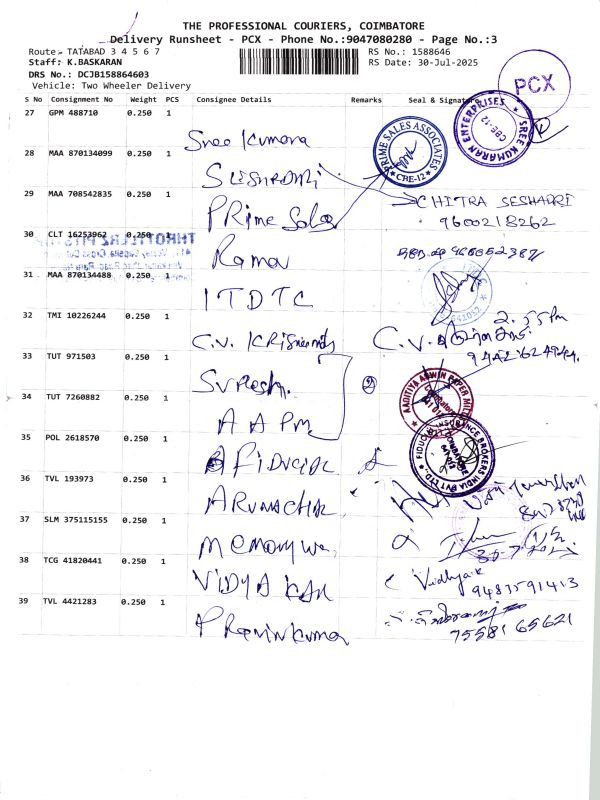 THE PROFESSIONAL COURIERS, COIMBATORE
Delivery Runsheet - PCX - Phone No.:9047080280 - Page No.:3
Route: TATABAD 3 4 5 6 7
RS No.: 1588646
Staff: K.BASKARAN
RS Date: 30-Jul-2025
DRS No.: DCJB158864603
Vehicle: Two Wheeler Delivery
PCX
S No Consignment No Weight PCS Consignee Details Remarks Seal & Signature
27 GPM 488710 0.250 1 Sree Kumara
SREE KUMARAN ENTERPRISES CBE-12
PRIME SALES ASSOCIATES CBE-12
28 MAA 870134099 0.250 1 SESHADRI
CHITRA SESHADRI
9600218262
29 MAA 708542835 0.250 1 PRime Sales
30 CLT 16253962 0.250 1 Rama
31 MAA 870134488 0.250 1 ITDTC
32 TMI 10226244 0.250 1 C.V. KRISHNAN
2.55pm
33 TUT 971503 0.250 1 Suresh.
2
34 TUT 7260882 0.250 1 AAPM
AADITYA ASWIN PAPER MILLS
35 POL 2618570 0.250 1 FIDUCIA
FIDUCIA INSURANCE BROKERS INDIA PVT LTD. COIMBATORE
36 TVL 193973 0.250 1 ARUNACHA
37 SLM 375115155 0.250 1 Memorywe
38 TCG 41820441 0.250 1 VIDYA KAR
Vidhya K
9487591413
39 TVL 4421283 0.250 1 PRavinkumar
75581 65621